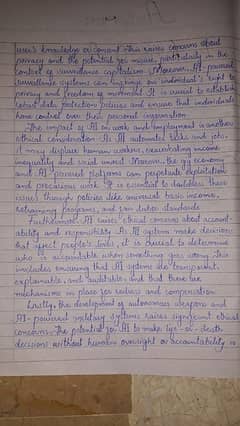 user's knowledge or consent. This raises concerns about
privacy and the potential for misuse, particularly in the
context of surveillance capitalism. Moreover, AI-powered
surveillance systems can infringe on individual's right to
privacy and freedom of movement. It is crucial to establish
robust data protection policies and ensure that individuals
have control over their personal information.
The impact of AI on work and employment is another
ethical consideration. As AI automates tasks and jobs,
it may displace human workers, exacerbating income
inequality and social unrest. Moreover, the gig economy
and AI-powered platforms can perpetuate exploitation
and precarious work. It is essential to address these
issues through policies like universal basic income,
retraining programs, and fair labor standards.
Furthermore, AI raises ethical concerns about account-
ability and responsibility. As AI systems make decisions
that affect people's lives, it is crucial to determine
who is accountable when something goes wrong. This
includes ensuring that AI systems are transparent,
explainable, and auditable, and that there are
mechanisms in place for redress and compensation.
Lastly, the development of autonomous weapons and
AI-powered military systems raises significant ethical
concerns. The potential for AI to make life-or-death
decisions without human oversight or accountability is